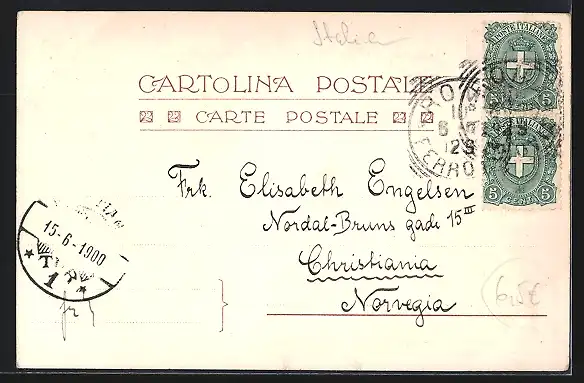 Italia
CARTOLINA POSTALE
CARTE POSTALE
POSTE ITALIANE
5
5
POSTE ITALIANE
5
5
FERRO
Frk. Elisabeth Engelsen
Nordal-Bruns gade 15 III
Christiania
Norvegia
15-6-1900
1